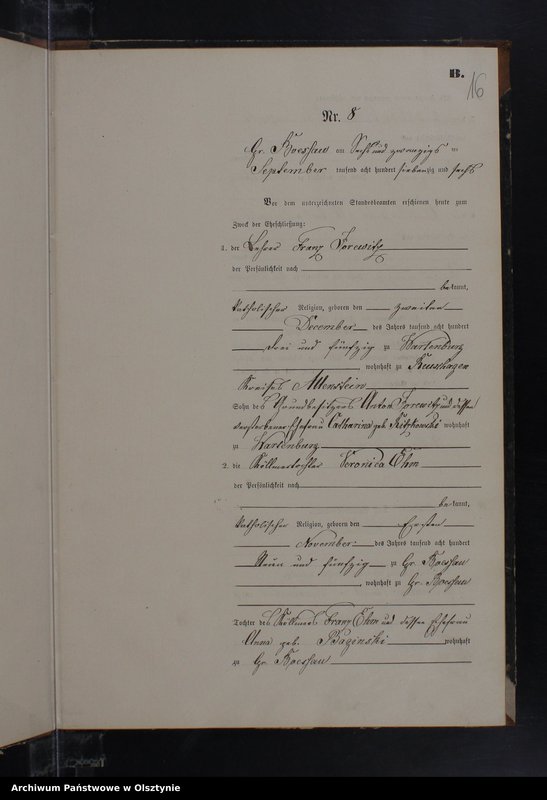 B.
16
Nr. 8
Gr. Boessau am Sechs und zwanzigsten
September tausend acht hundert siebenzig und sechs
Vor dem unterzeichneten Standesbeamten erschienen heute zum
Zweck der Eheschließung:
1. der Lehrer Franz Sorewitz
der Persönlichkeit nach
bekannt,
katholischer Religion, geboren den zweiten
December des Jahres tausend acht hundert
drei und fünfzig zu Wartenburg
, wohnhaft zu
Kreises Allenstein
Sohn des Grundbesitzers Anton Sorewitz und dessen
verstorbener Ehefrau Catharina geb. wohnhaft
zu Wartenburg
2. die Köllmertochter Veronica Ehm
der Persönlichkeit nach
bekannt,
katholischer Religion, geboren den Ersten
November des Jahres tausend acht hundert
Neun und fünfzig zu Gr. Boessau
, wohnhaft zu Gr. Boessau
Tochter des Köllmers Franz Ehm und dessen Ehefrau
Anna geb. Baginski wohnhaft
zu Gr. Boessau
Archiwum Państwowe w Olsztynie